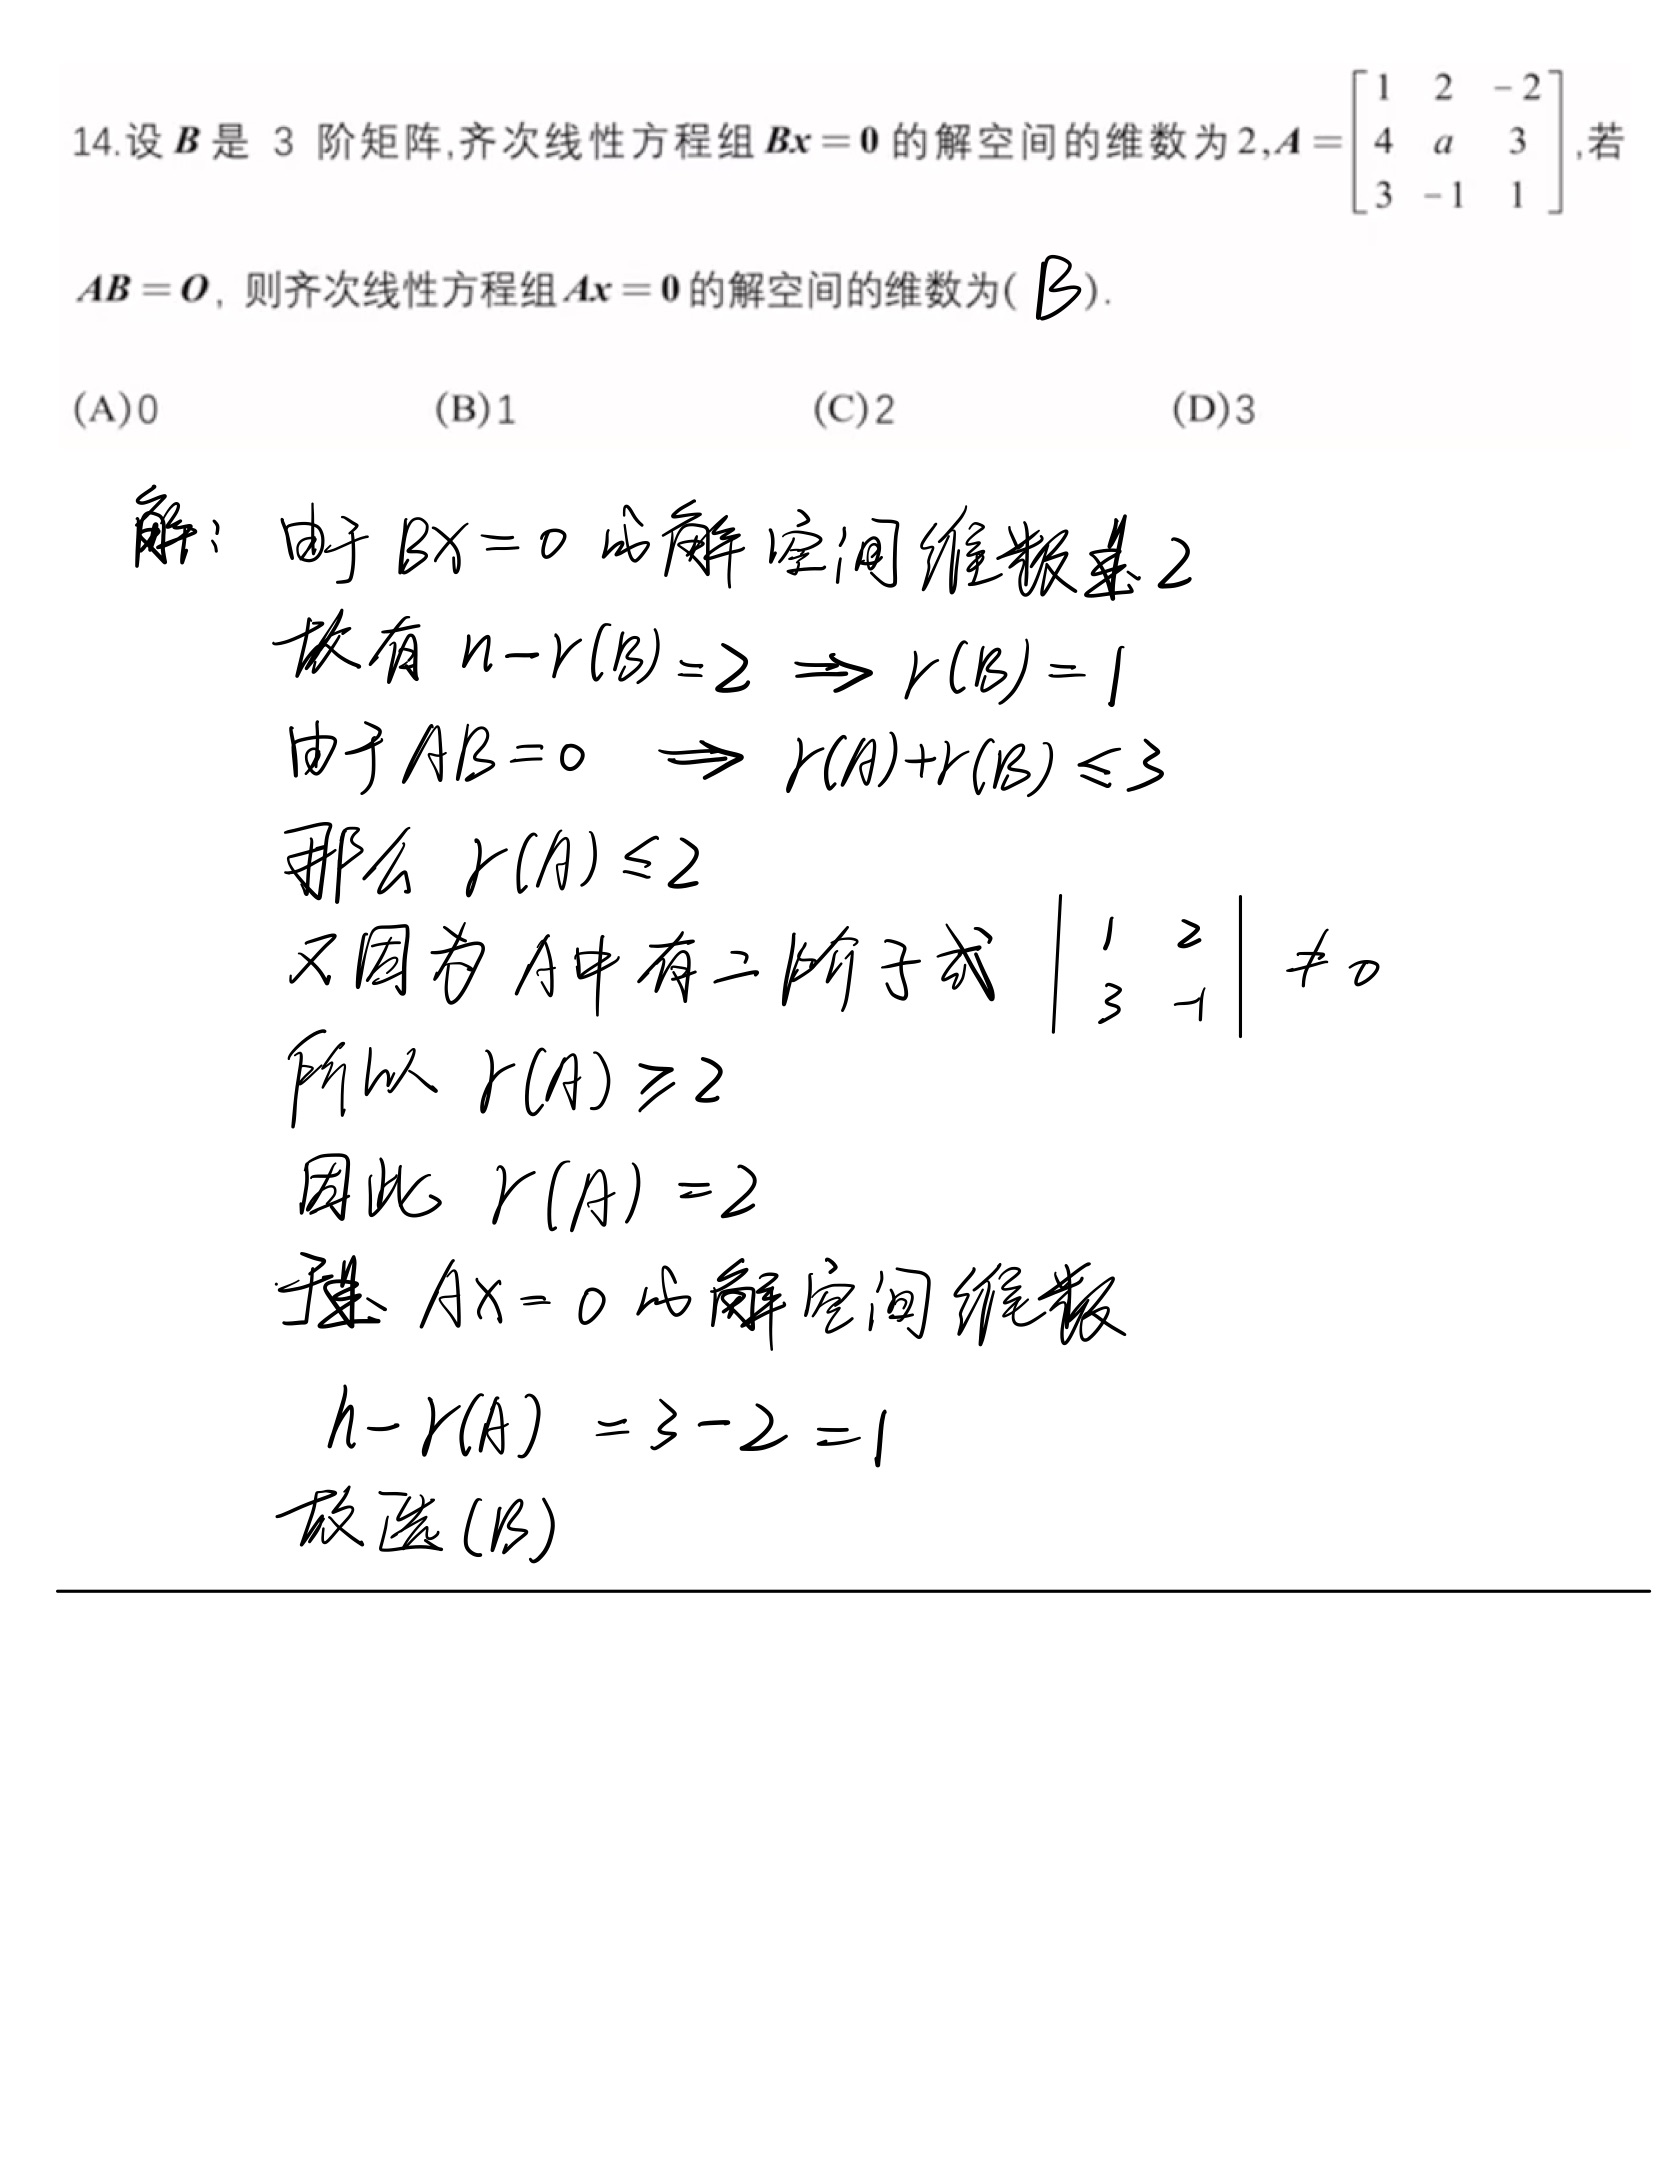 14.设 B 是 3 阶矩阵,齐次线性方程组 Bx = 0 的解空间的维数为 2, A = [1 2 -2; 4 a 3; 3 -1 1], 若
AB = O, 则齐次线性方程组 Ax = 0 的解空间的维数为( B ).
(A)0 (B)1 (C)2 (D)3
解: 由于 BX=0 的解空间维数是 2
故有 n-r(B)=2 ⇒ r(B)=1
由于 AB=0 ⇒ r(A)+r(B)≤3
那么 r(A)≤2
又因为 A中有二阶子式 |1 2; 3 -1| ≠0
所以 r(A)≥2
因此 r(A)=2
于是 AX=0 的解空间维数
n-r(A) =3-2=1
故选(B)